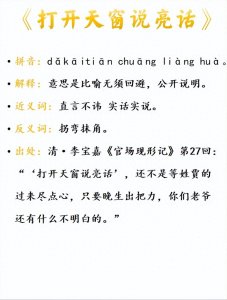 《打开天窗说亮话》
• 拼音：dǎkāitiān chuāng liàng huà。
• 解释：意思是比喻无须回避，公开说明。
• 近义词：直言不讳 实话实说。
• 反义词：拐弯抹角。
• 出处：清·李宝嘉《官场现形记》第27回：
“‘打开天窗说亮话’，还不是等姓贾的
过来尽点心，只要晚生出把力，你们老爷
还有什么不明白的。”